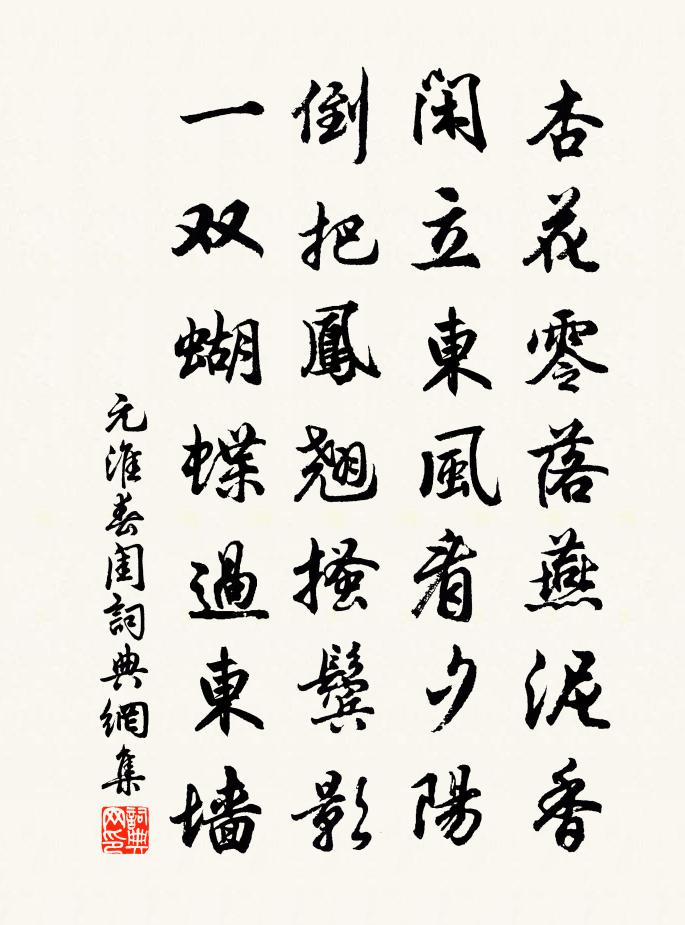 杏花零落燕泥香
閑立東風看夕陽
倒把鳳翹搔鬢影
一双蝴蝶過東墙
元淮春閨詞典網集
詞典网印